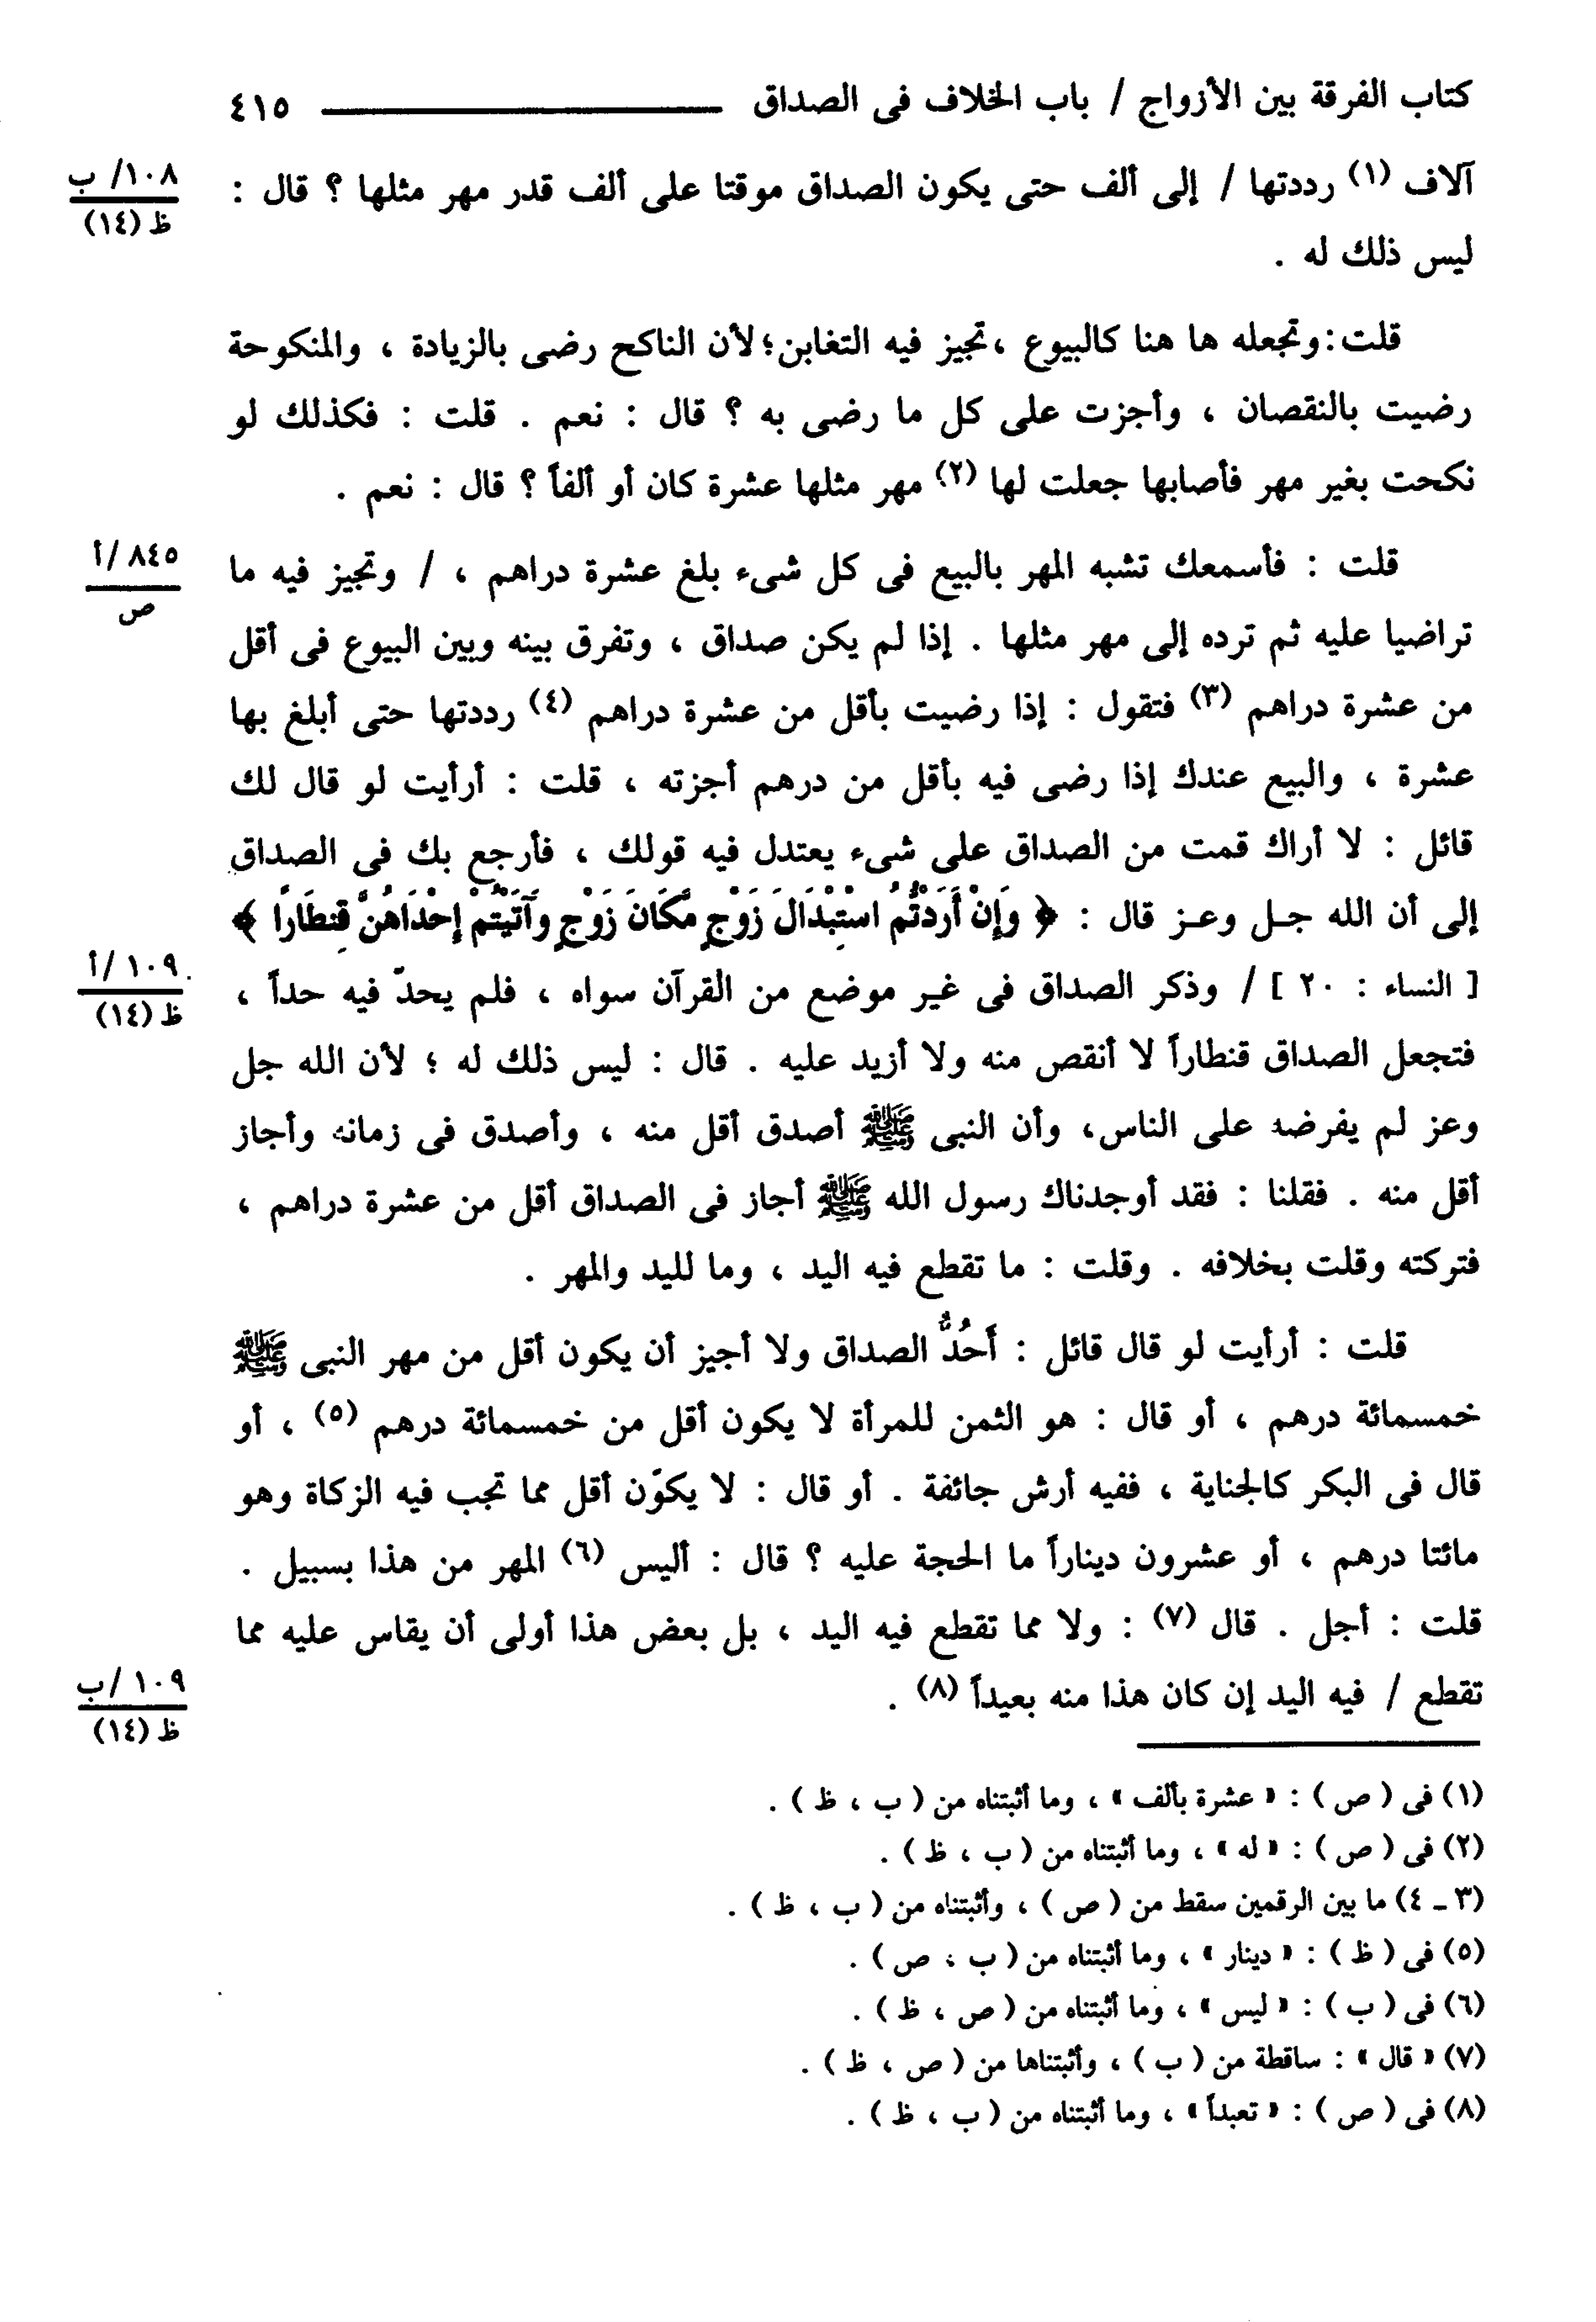 كتاب الفرقة بين الأزواج / باب الخلاف فى الصداق ٤١٥
آلاف (١) رددتها / إلى ألف حتى يكون الصداق موقتا على ألف قدر مهر مثلها ؟ قال :
١٠٨/ ب
ظ (١٤)
ليس ذلك له .
قلت : وتجعله ها هنا كالبيوع ، تجيز فيه التغابن ؛ لأن الناكح رضى بالزيادة ، والمنكوحة
رضيت بالنقصان ، وأجزت على كل ما رضى به ؟ قال : نعم . قلت : فكذلك لو
نكحت بغير مهر فأصابها جعلت لها (٢) مهر مثلها عشرة كان أو ألفاً ؟ قال : نعم .
قلت : فأسمعك تشبه المهر بالبيع فى كل شىء بلغ عشرة دراهم ، / وتجيز فيه ما
٨٤٥ /أ
ص
تراضيا عليه ثم ترده إلى مهر مثلها . إذا لم يكن صداق ، وتفرق بينه وبين البيوع فى أقل
من عشرة دراهم (٣) فتقول : إذا رضيت بأقل من عشرة دراهم (٤) رددتها حتى أبلغ بها
عشرة ، والبيع عندك إذا رضى فيه بأقل من درهم أجزته ، قلت : أرأيت لو قال لك
قائل : لا أراك قمت من الصداق على شىء يعتدل فيه قولك ، فأرجع بك فى الصداق
إلى أن الله جـل وعـز قال : ﴿ وَإِنْ أَرَدْتُمُ اسْتِبْدَالَ زَوْجٍ مَّكَانَ زَوْجٍ وَآتَيْتُمْ إِحْدَاهُنَّ قِنطَارًا ﴾
[ النساء : ٢٠ ] / وذكر الصداق فى غير موضع من القرآن سواه ، فلم يحدّ فيه حداً ،
١٠٩ /أ
ظ (١٤)
فتجعل الصداق قنطاراً لا أنقص منه ولا أزيد عليه . قال : ليس ذلك له ؛ لأن الله جل
وعز لم يفرضه على الناس، وأن النبى ﷺ أصدق أقل منه ، وأصدق فى زمانه وأجاز
أقل منه . فقلنا : فقد أوجدناك رسول الله ﷺ أجاز فى الصداق أقل من عشرة دراهم ،
فتركته وقلت بخلافه . وقلت : ما تقطع فيه اليد ، وما لليد والمهر .
قلت : أرأيت لو قال قائل : أَحُدُّ الصداق ولا أجيز أن يكون أقل من مهر النبى ﷺ
خمسمائة درهم ، أو قال : هو الثمن للمرأة لا يكون أقل من خمسمائة درهم (٥) ، أو
قال فى البكر كالجناية ، ففيه أرش جائفة . أو قال : لا يكون أقل مما تجب فيه الزكاة وهو
مائتا درهم ، أو عشرون ديناراً ما الحجة عليه ؟ قال : أليس (٦) المهر من هذا بسبيل .
قلت : أجل . قال (٧) : ولا مما تقطع فيه اليد ، بل بعض هذا أولى أن يقاس عليه مما
تقطع / فيه اليد إن كان هذا منه بعيداً (٨) .
١٠٩ /ب
ظ (١٤)
(١) فى ( ص ) : « عشرة بألف » ، وما أثبتناه من ( ب ، ظ ) .
(٢) فى ( ص ) : « له » ، وما أثبتناه من ( ب ، ظ ) .
(٣ ـ ٤) ما بين الرقمين سقط من ( ص ) ، وأثبتناه من ( ب ، ظ ) .
(٥) فى ( ظ ) : « دينار » ، وما أثبتناه من ( ب ، ص ) .
(٦) فى ( ب ) : « ليس » ، وما أثبتناه من ( ص ، ظ ) .
(٧) « قال » : ساقطة من ( ب ) ، وأثبتناها من ( ص ، ظ ) .
(٨) فى ( ص ) : « تعبداً » ، وما أثبتناه من ( ب ، ظ ) .